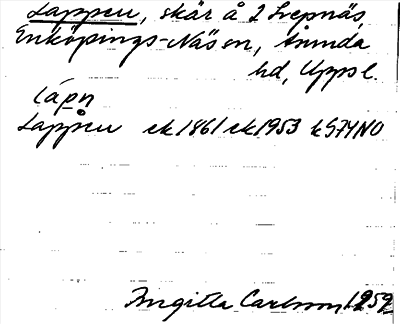 Lappen, skär å 2 Svepnäs,
Enköpings-Näs sn, Åsunda
hd, Uppsl.
lápn
Lappen ek 1861 ek 1953 k S74NO
Birgitta Carlsson 1959